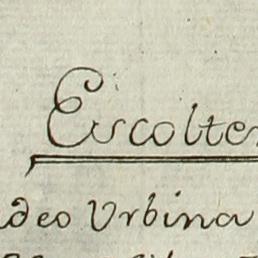 Escolten
ideo Urbina